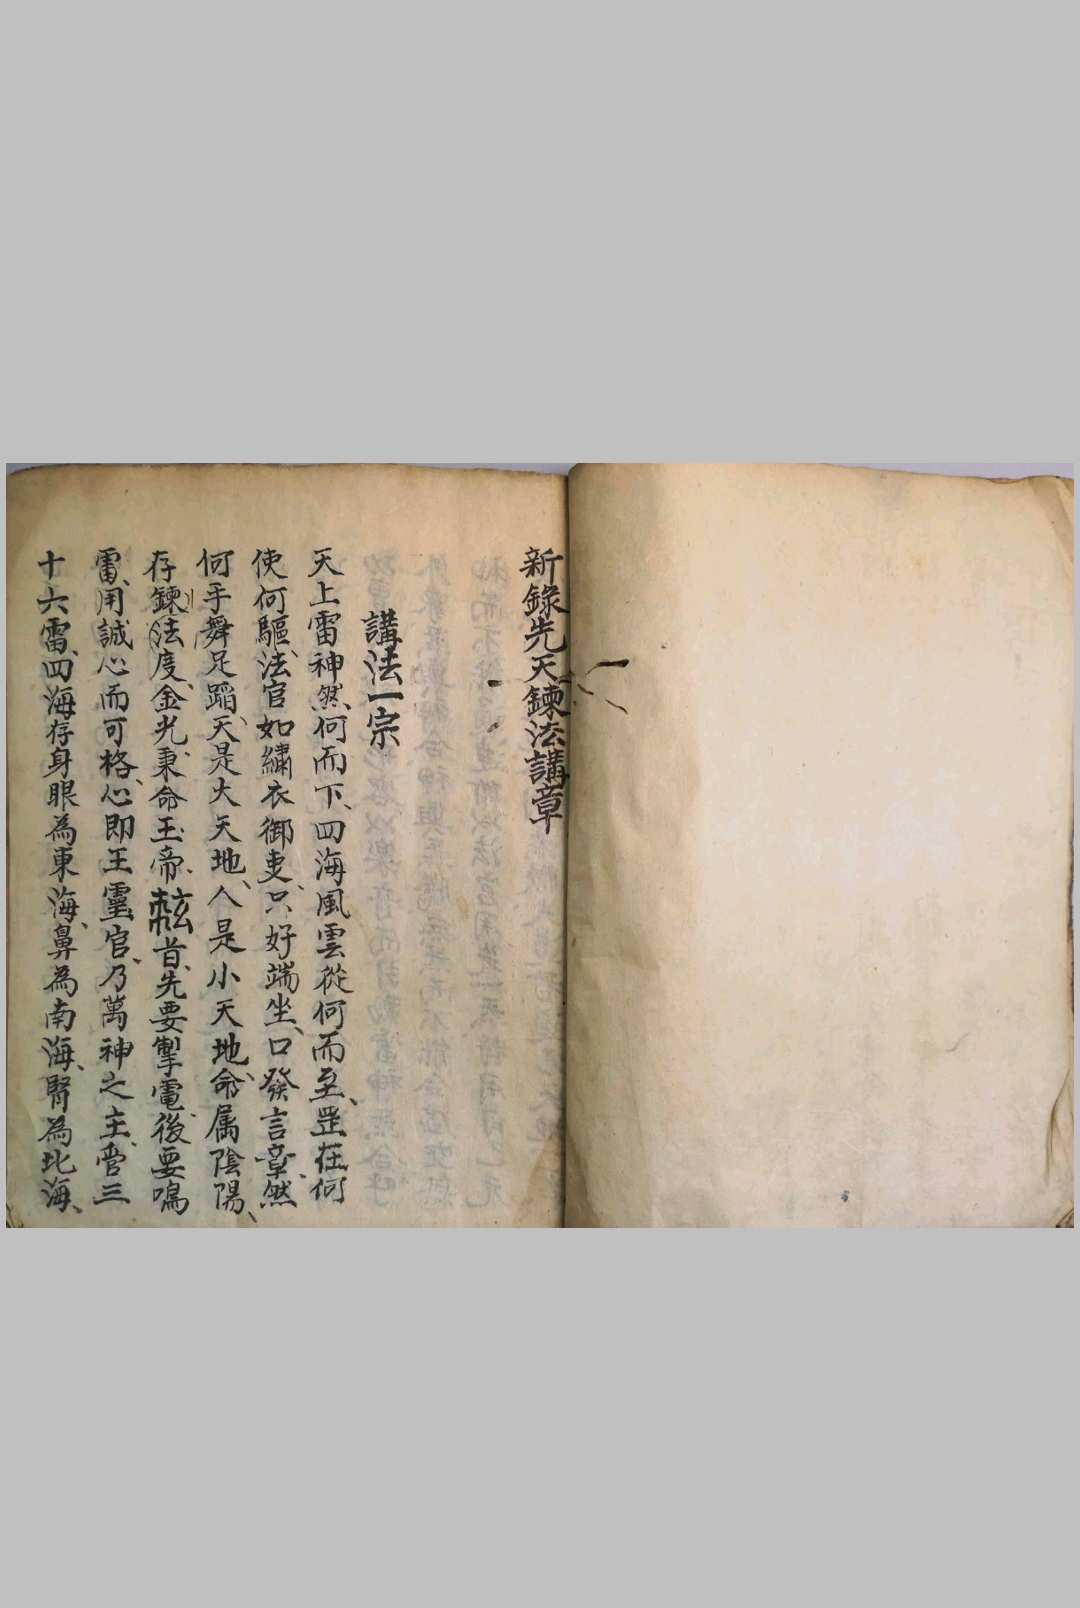 新錄先天鍊法講章
講法一宗
天上雷神然何而下、四海風雲從何而至、罡在何
使何驅、法官如繡衣御吏、只好端坐、口發言章、然
何手舞足蹈、天是大天地、人是小天地、命属陰陽、
存鍊法度、金光、秉命玉帝、首先要掣電、後要鳴
雷、用誠心而可格、心即王靈官、乃萬神之主、管三
十六雷、四海存身眼為東海、鼻為南海、腎為北海、